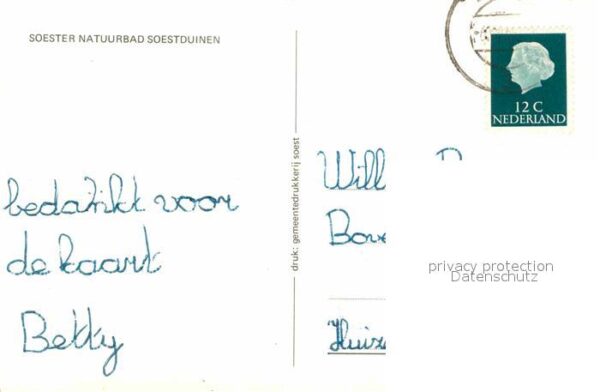 SOESTER NATUURBAD SOESTDUINEN
bedankt voor
de kaart
Betty
druk: gemeentedrukkerij soest
12 C
NEDERLAND
privacy protection
Datenschutz